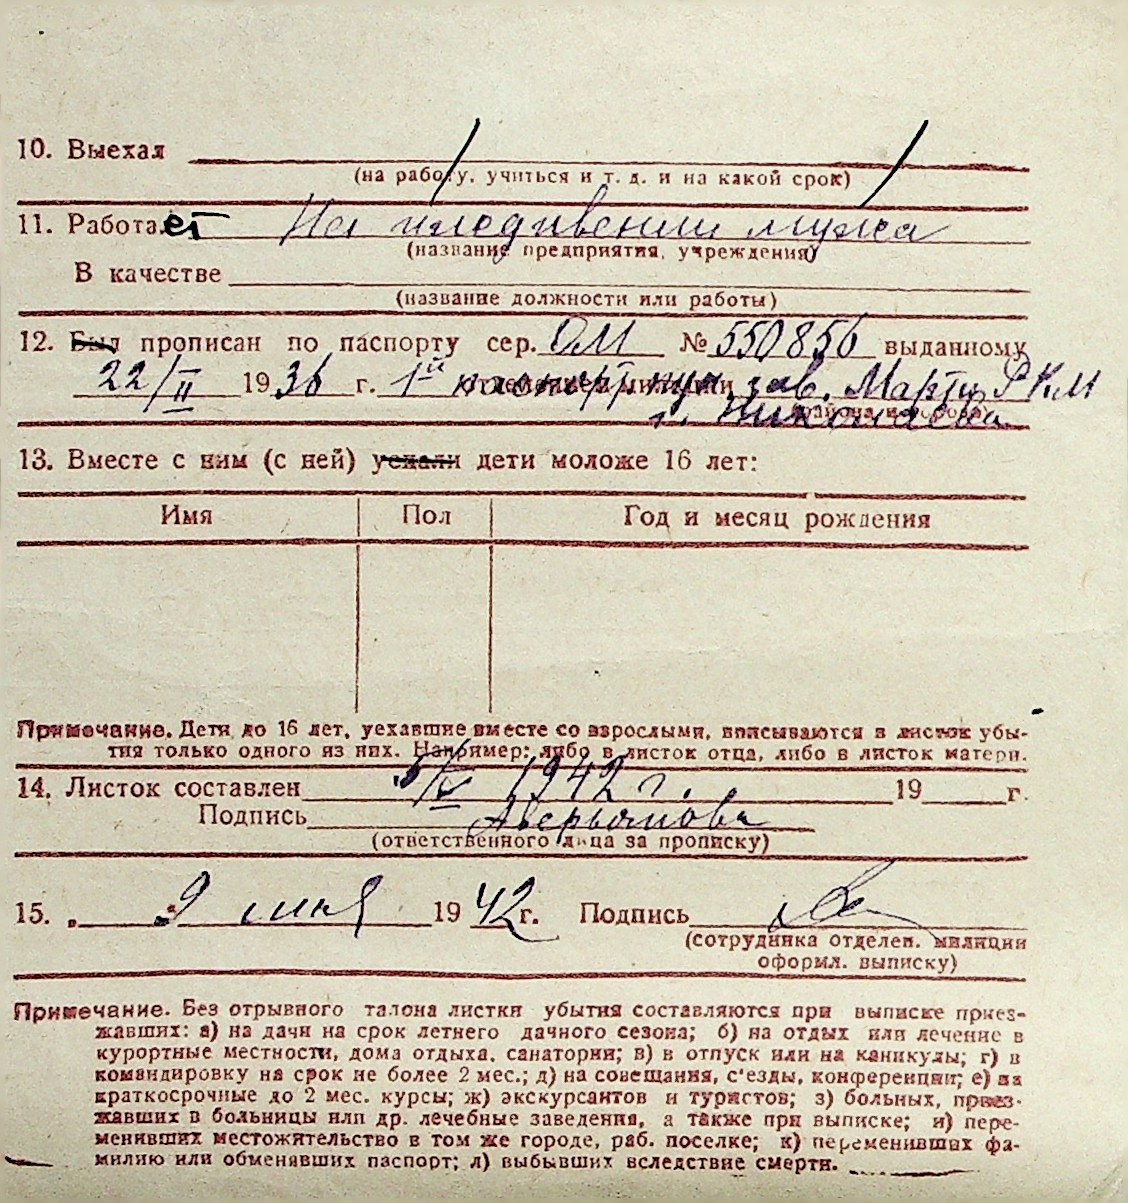 10. Выехал
(на работу, учиться и т. д. и на какой срок)
11. Работает На иждивении мужа
(название предприятия, учреждения)
В качестве
(название должности или работы)
12. Был прописан по паспорту сер. ОМ № 550856 выданному
22/II 1936 г. 1й отделением милиции зав. Марти РКМ
г. Николаева
13. Вместе с ним (с ней) уехали дети моложе 16 лет:
Имя Пол Год и месяц рождения
Примечание. Дети до 16 лет, уехавшие вместе со взрослыми, вписываются в листок убы-
тия только одного из них. Например: либо в листок отца, либо в листок матери.
14. Листок составлен 5/V 1942 г. 19 г.
Подпись Аверьянова
(ответственного лица за прописку)
15. „ 9 мая 1942 г. Подпись
(сотрудника отделен. милиции
оформл. выписку)
Примечание. Без отрывного талона листки убытия составляются при выписке приез-
жавших: а) на дачи на срок летнего дачного сезона; б) на отдых или лечение в
курортные местности, дома отдыха, санатории; в) в отпуск или на каникулы; г) в
командировку на срок не более 2 мес.; д) на совещания, с'езды, конференции; е) на
краткосрочные до 2 мес. курсы; ж) экскурсантов и туристов; з) больных, приез-
жавших в больницы или др. лечебные заведения, а также при выписке; и) пере-
менивших местожительство в том же городе, раб. поселке; к) переменивших фа-
милию или обменявших паспорт; л) выбывших вследствие смерти.